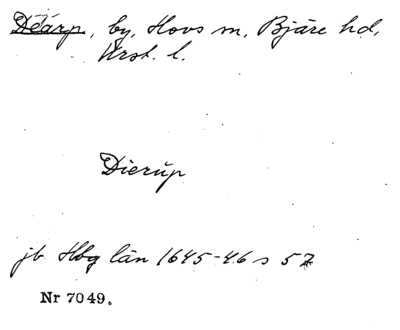 Dèarp, by, Hovs sn, Bjäre hd,
Krst. l.
Dierup
jb Hbg län 1645-46 s 57
Nr 7049.